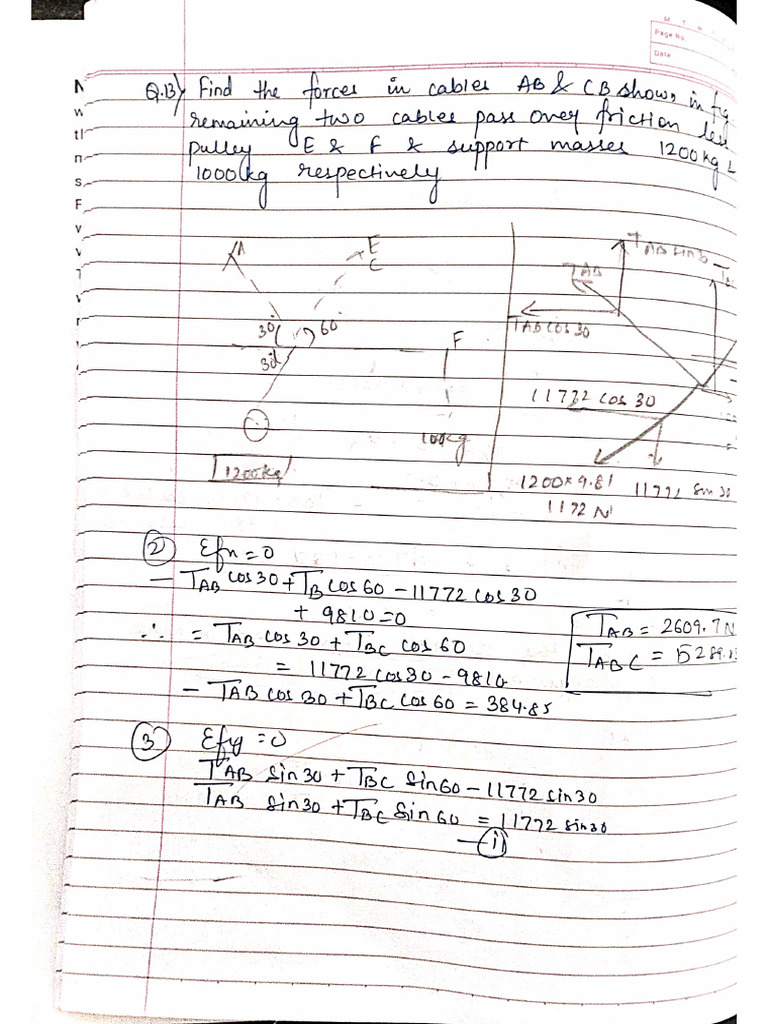 Page No.
Date
Q.13) Find the forces in cables AB & CB shows in fig
remaining two cables pass over friction less
pulley E & F & support masses 1200kg &
1000kg respectively
A
E
C
30°
60°
30°
F
1200kg
TAB sin30
TAB
TAB cos 30
11772 cos 30
1200×9.81
11772 sin 30
1172 N
② Efn = 0
- TAB cos30 + TB cos 60 - 11772 cos 30
+ 9810 = 0
∴ = TAB cos 30 + TBC cos 60
= 11772 cos30 - 9810
- TAB cos 30 + TBC cos 60 = 384.85
TAB = 2609.7N
TABC = 5289.
③ Efy = 0
TAB sin30 + TBC sin60 - 11772 sin30
TAB sin30 + TBC Sin 60 = 11772 sin30
- ⓘ